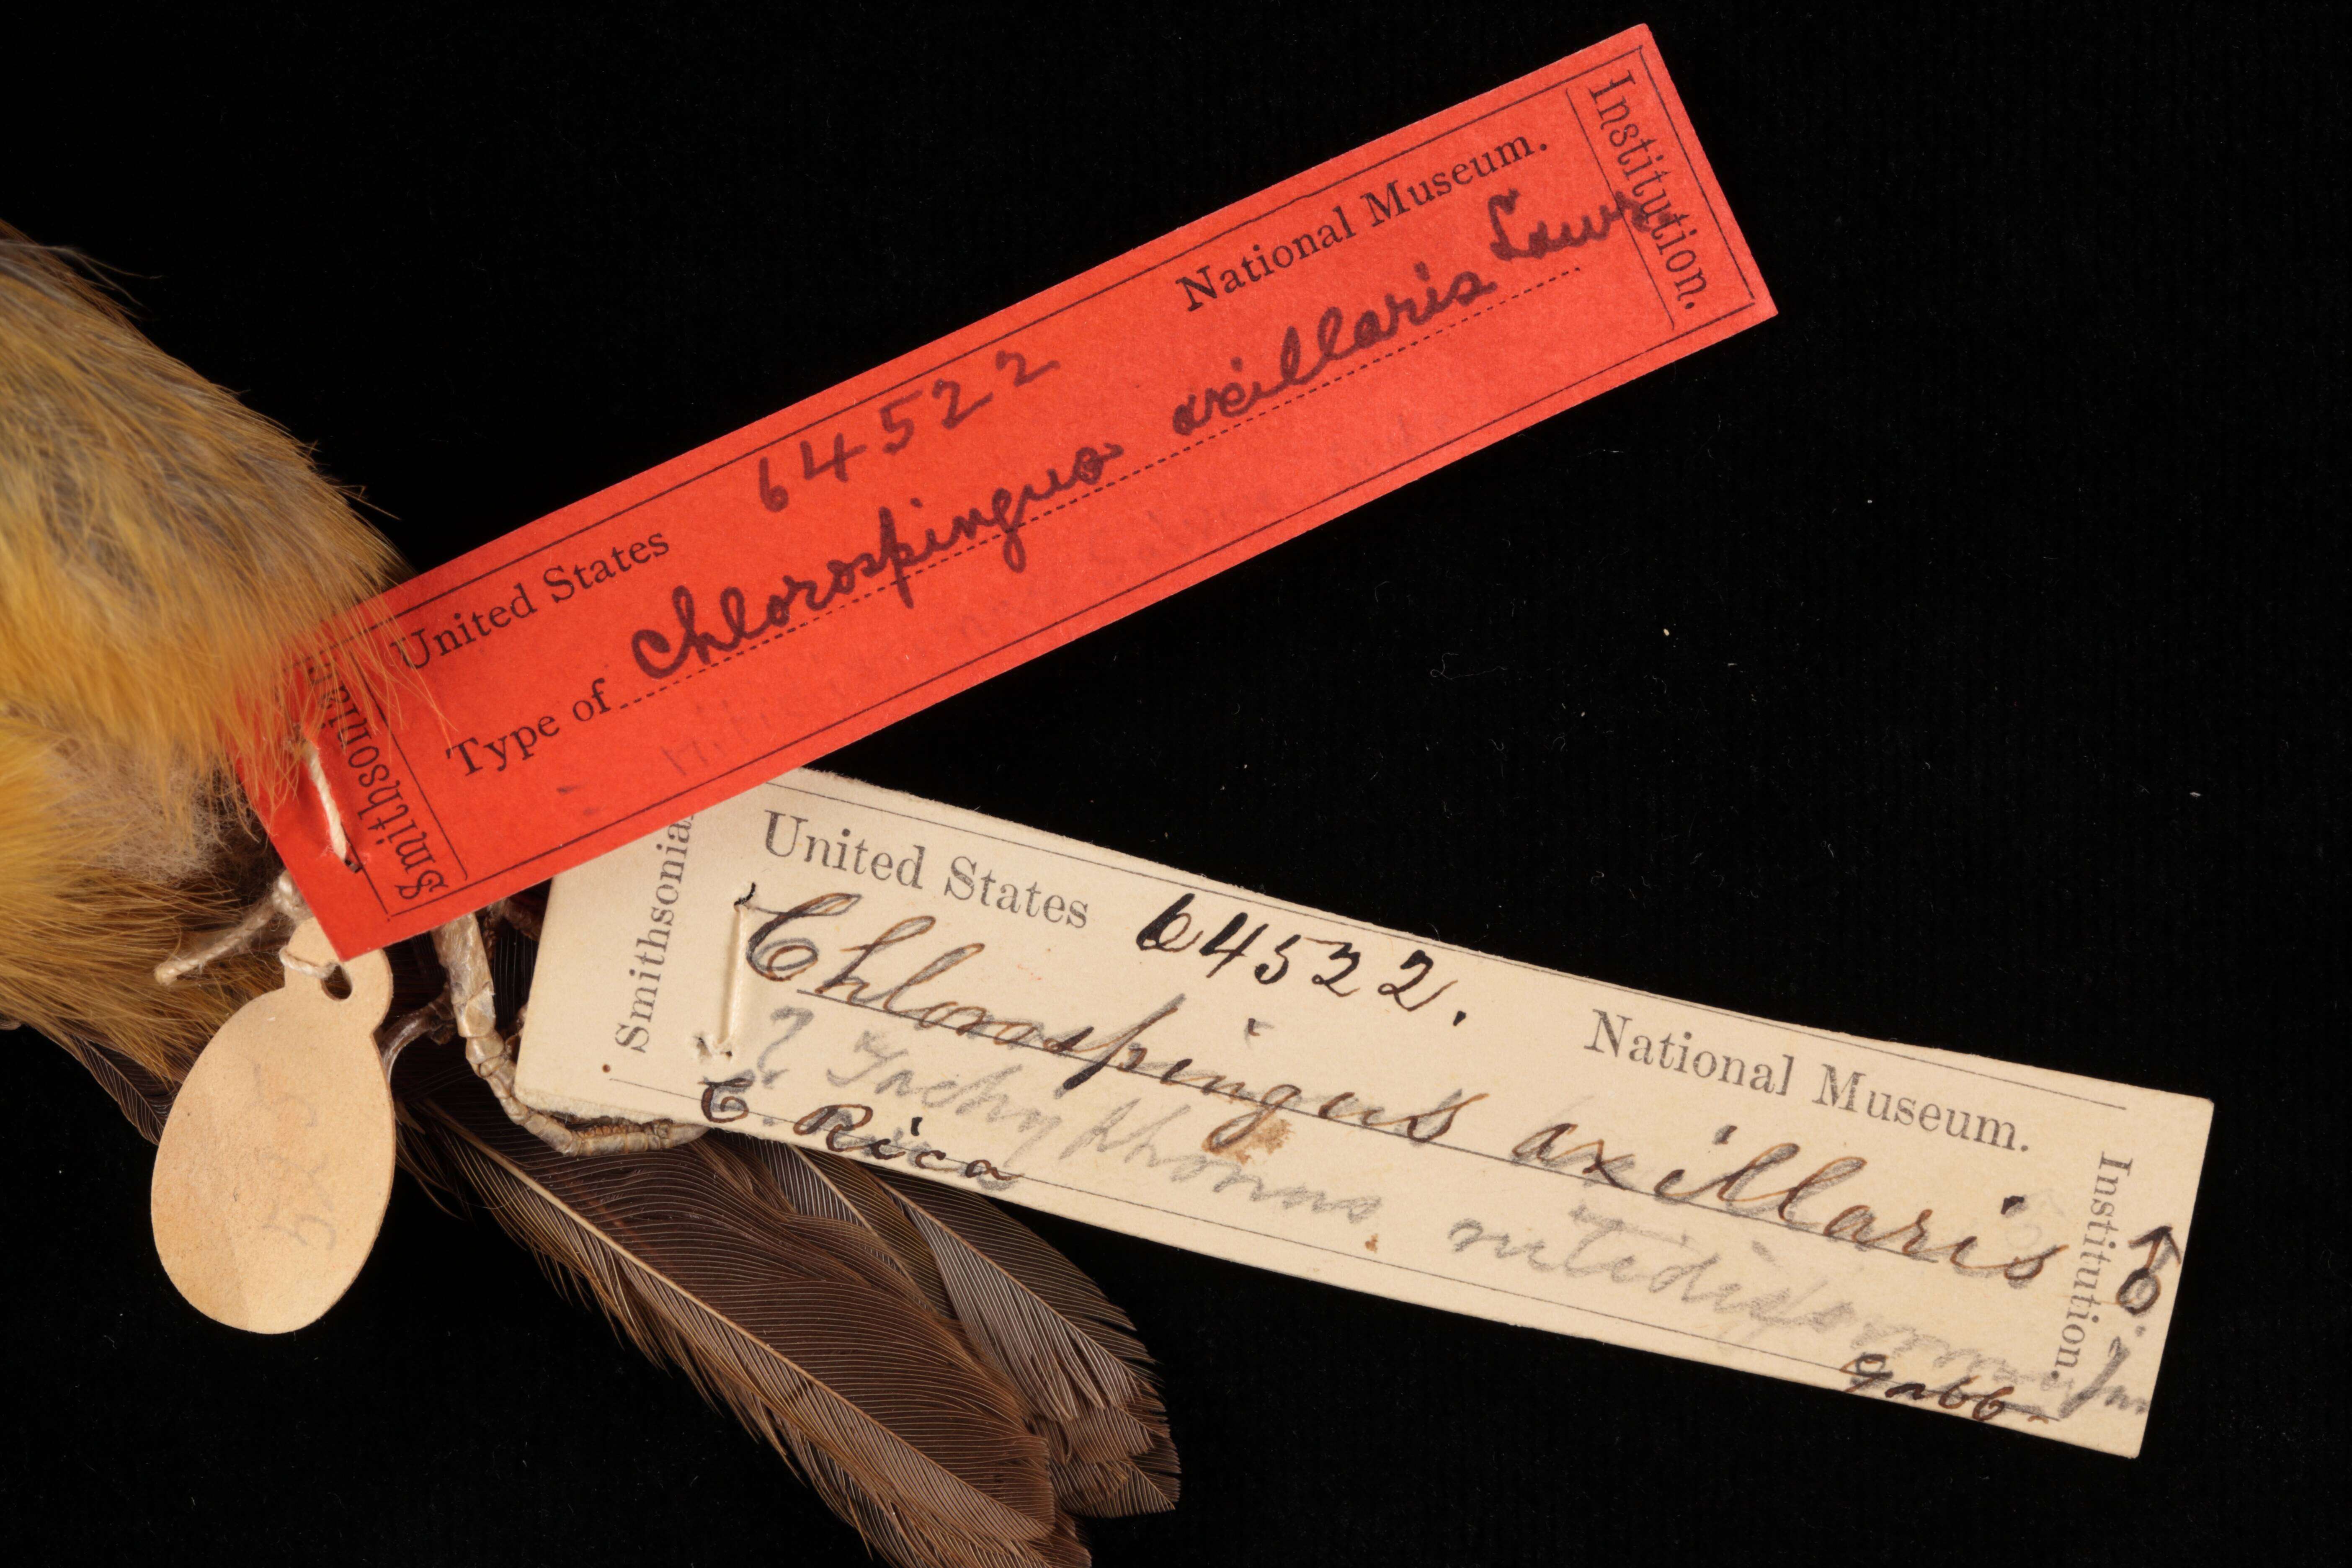 Smithsonian
United States
64522
National Museum.
Type of Chlorospingus axillaris Lawr
Institution.
Smithsonia
United States
64522.
National Museum.
Chlorospingus axillaris ♂
? Tachyphonus nitidissimus
C. Rica
Gabb.
Institution.
525